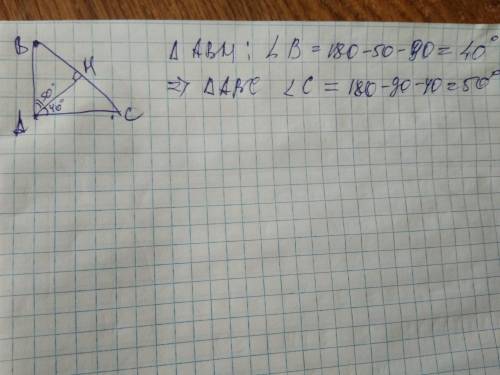 B
H
50°
40°
A
C
Δ ABH : ∠B = 180-50-90 = 40°
⇒ ΔABC ∠C = 180-90-40=50°